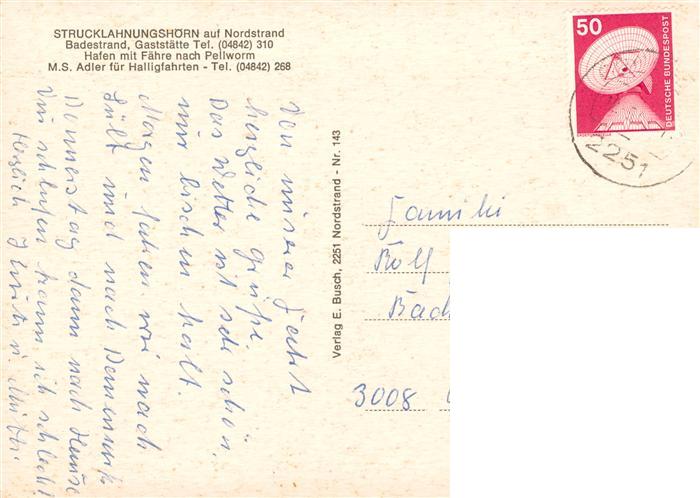 STRUCKLAHNUNGSHÖRN auf Nordstrand
Badestrand, Gaststätte Tel. (04842) 310
Hafen mit Fähre nach Pellworm
M.S. Adler für Halligfahrten - Tel. (04842) 268
Von unserer Fahrt
herzliche Grüße.
Das Wetter ist sehr schön,
nur bischen kalt.
Morgen fahren wir nach
Sült und nach Dänemark
Donnerstag dann nach Hause
Nur schlafen kann ich schlecht
Herzlich
Verlag E. Busch, 2251 Nordstrand - Nr. 143
50
DEUTSCHE BUNDESPOST
ERDEFUNKSTELLE
2251
Familie
Rolf
Bach
3008